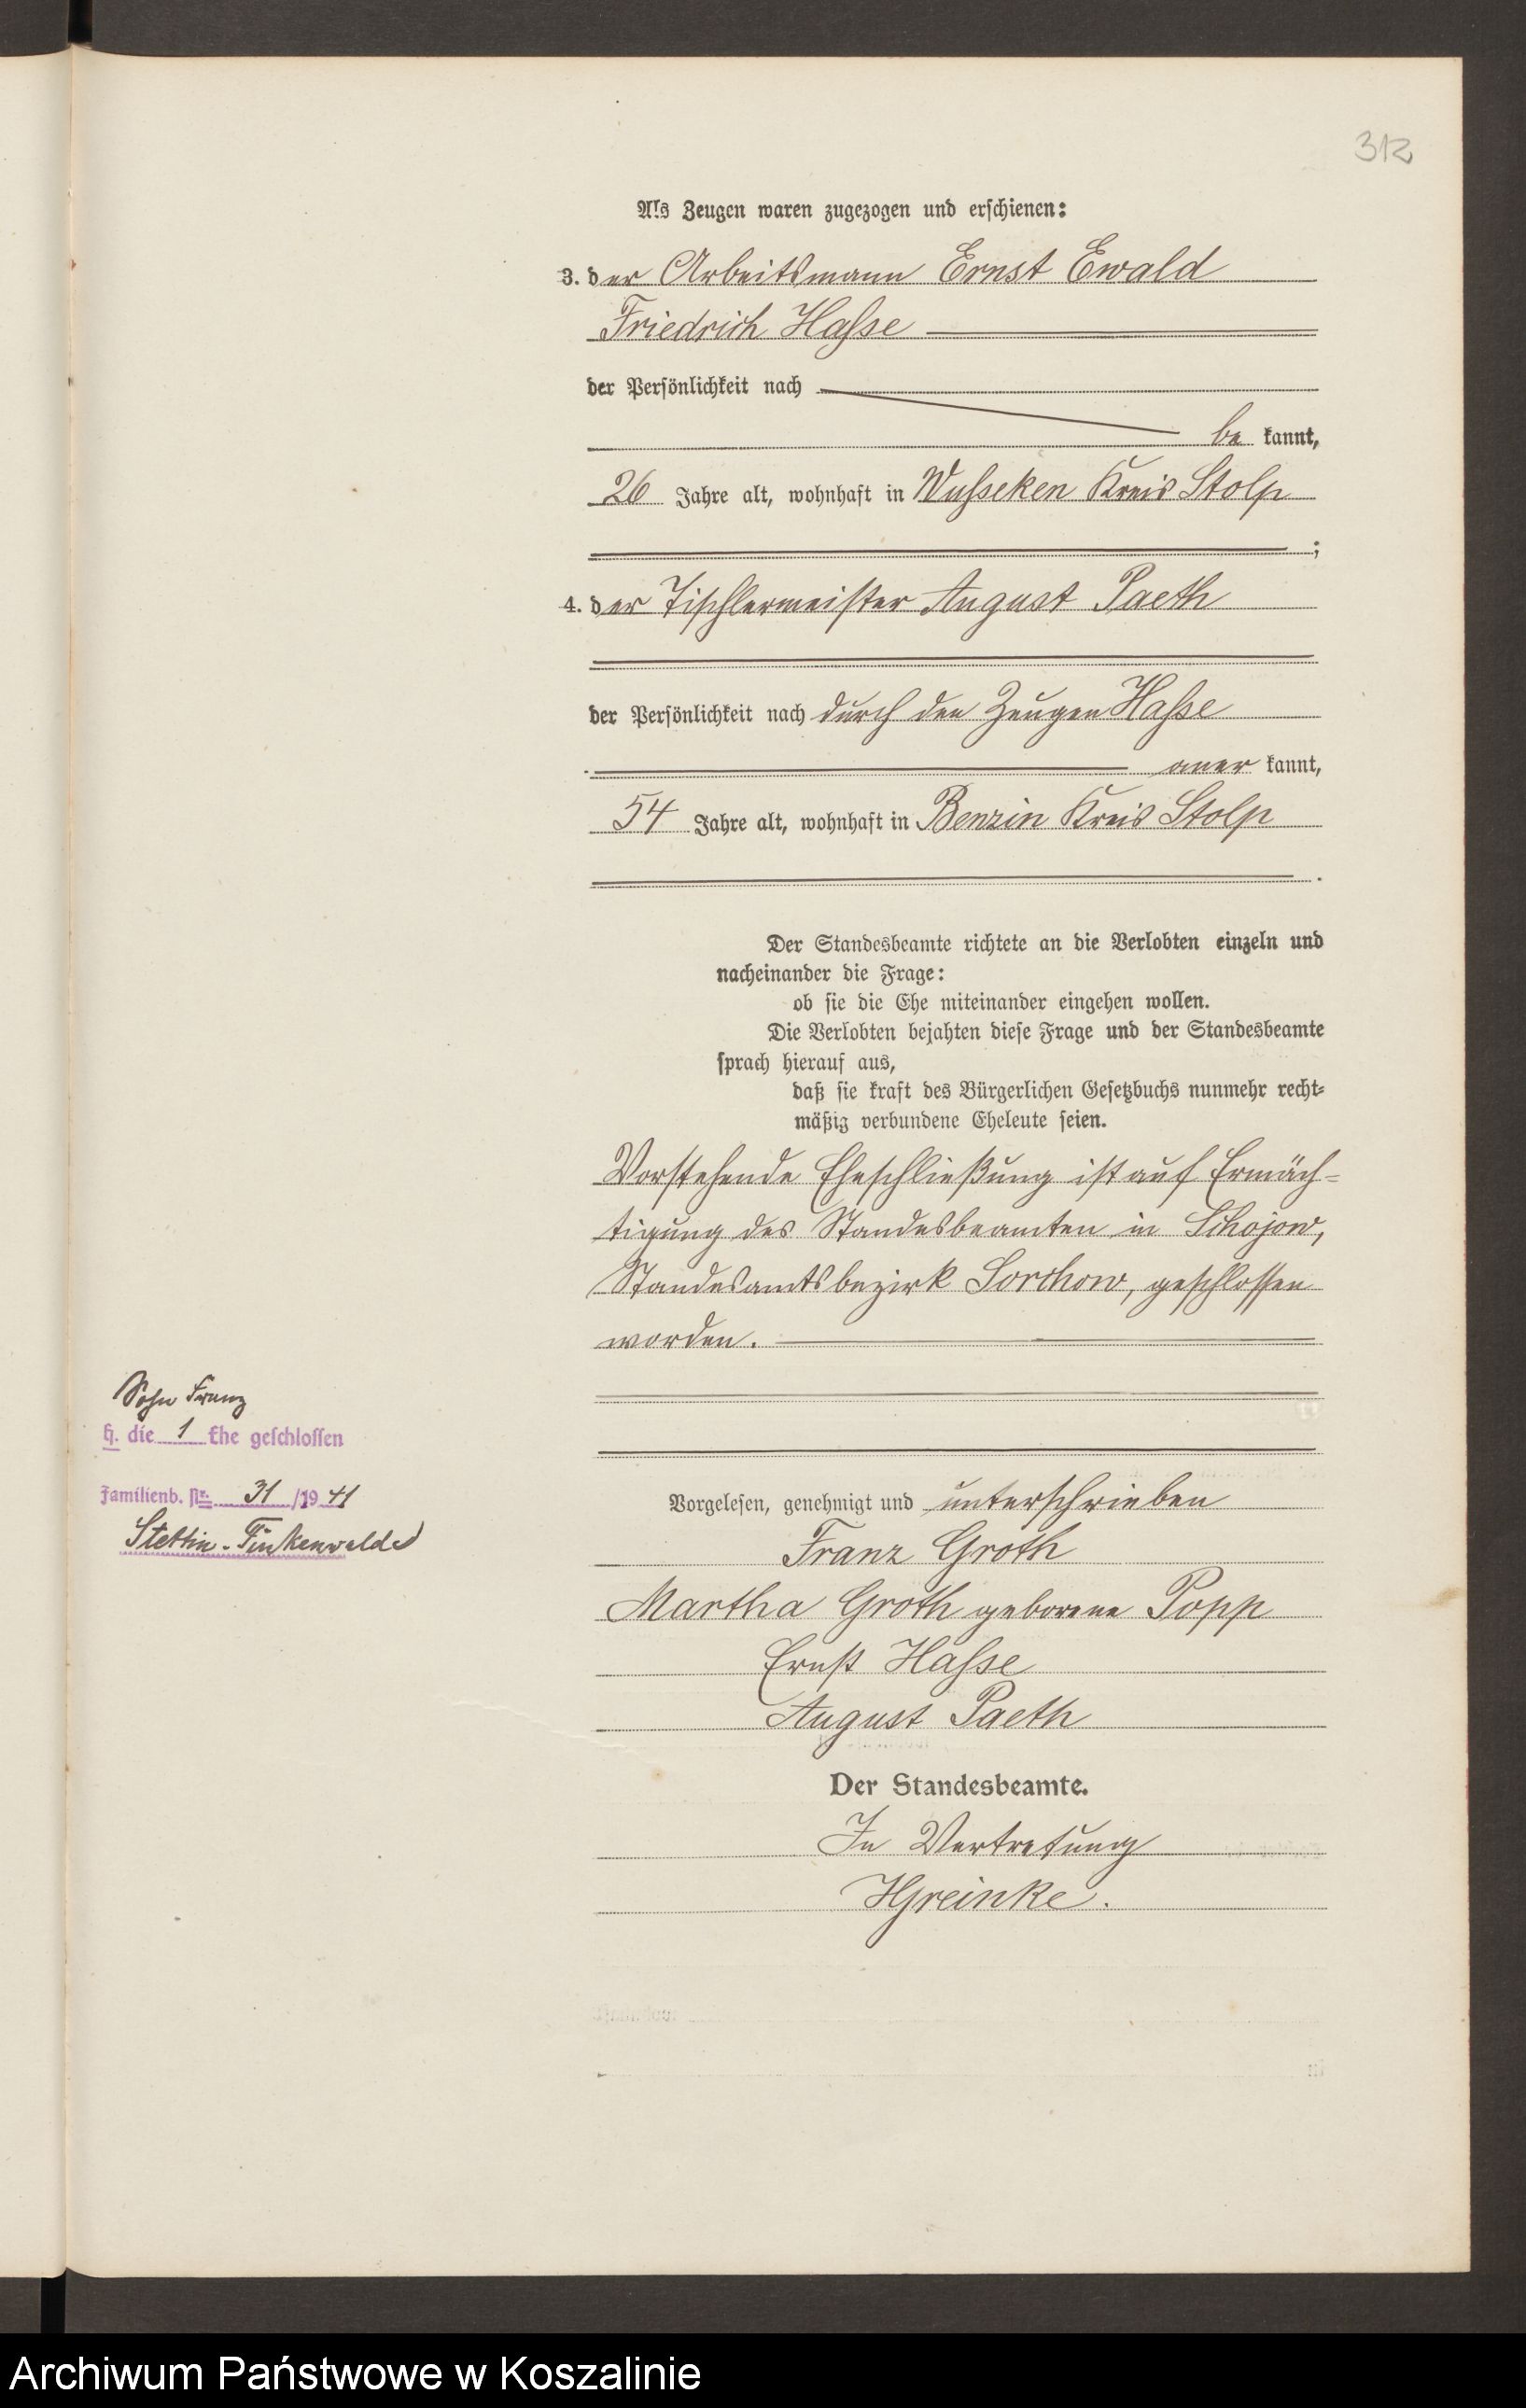 312
Als Zeugen waren zugezogen und erschienen:
3. der Arbeitsmann Ernst Ewald
Friedrich Hasse
der Persönlichkeit nach
be kannt,
26 Jahre alt, wohnhaft in Wusseken Kreis Stolp
;
4. der Tischlermeister August Paeth
der Persönlichkeit nach durch den Zeugen Hasse
aner kannt,
54 Jahre alt, wohnhaft in Benzin Kreis Stolp
.
Der Standesbeamte richtete an die Verlobten einzeln und
nacheinander die Frage:
ob sie die Ehe miteinander eingehen wollen.
Die Verlobten bejahten diese Frage und der Standesbeamte
sprach hierauf aus,
daß sie kraft des Bürgerlichen Gesetzbuchs nunmehr recht-
mäßig verbundene Eheleute seien.
Vorstehende Eheschließung ist auf Ermäch-
tigung des Standesbeamten in Schojow,
Standesamtsbezirk Sorchow, geschlossen
worden.
Sohn Franz
H. die 1 Ehe geschlossen
Familienb. Nr. 31 /19 41
Stettin-Finkenwalde
Vorgelesen, genehmigt und unterschrieben
Franz Groth
Martha Groth geborene Popp
Ernst Hasse
August Paeth
Der Standesbeamte.
In Vertretung
HGreinke.
Archiwum Państwowe w Koszalinie